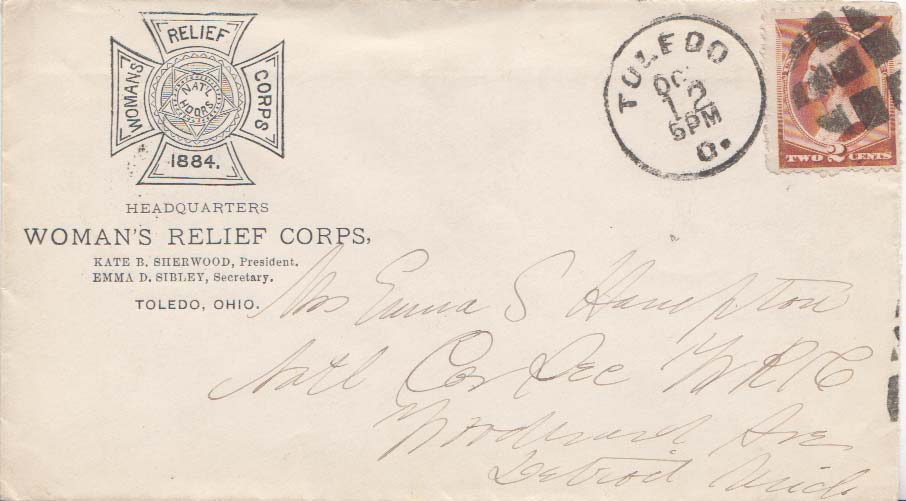 WOMANS RELIEF CORPS
NAT'L
HDQRS.
1884.
HEADQUARTERS
WOMAN'S RELIEF CORPS,
KATE B. SHERWOOD, President.
EMMA D. SIBLEY, Secretary.
TOLEDO, OHIO.
TOLEDO
OC
12
6PM
O.
TWO 2 CENTS
Mrs Emma S Hampton
Natl Cor Sec WRC
Woodward Ave
Detroit Mich